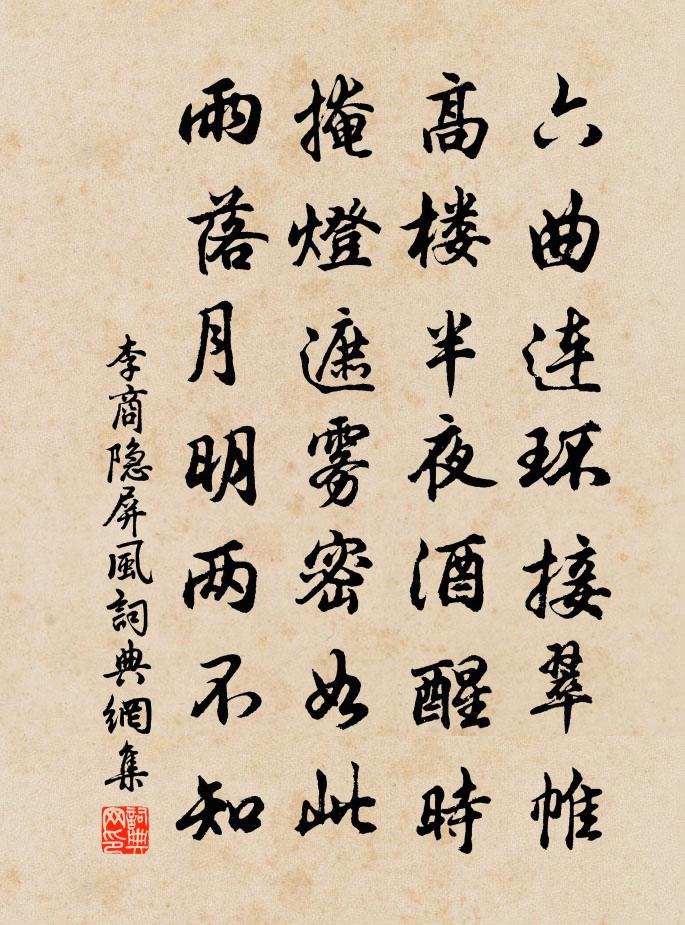 六曲连环接翠帷
高楼半夜酒醒时
掩燈遮雾密如此
雨落月明两不知
李商隐屏風詞典網集
詞典网印